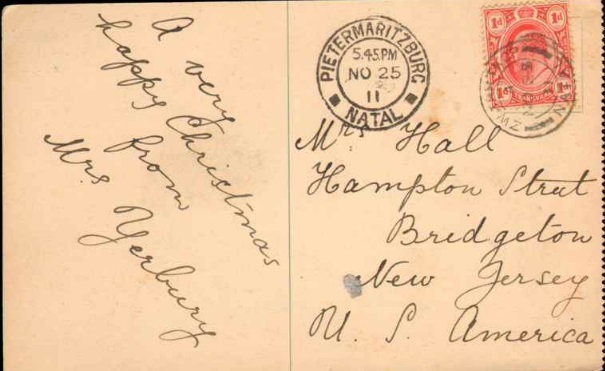 A very
happy Christmas
from
Mrs Yerbury
PIETERMARITZBURG
5.45 PM
NO 25
11
NATAL
1d 1d
1d 1d
Mrs Hall
Hampton Street
Bridgeton
New Jersey
U. S. America